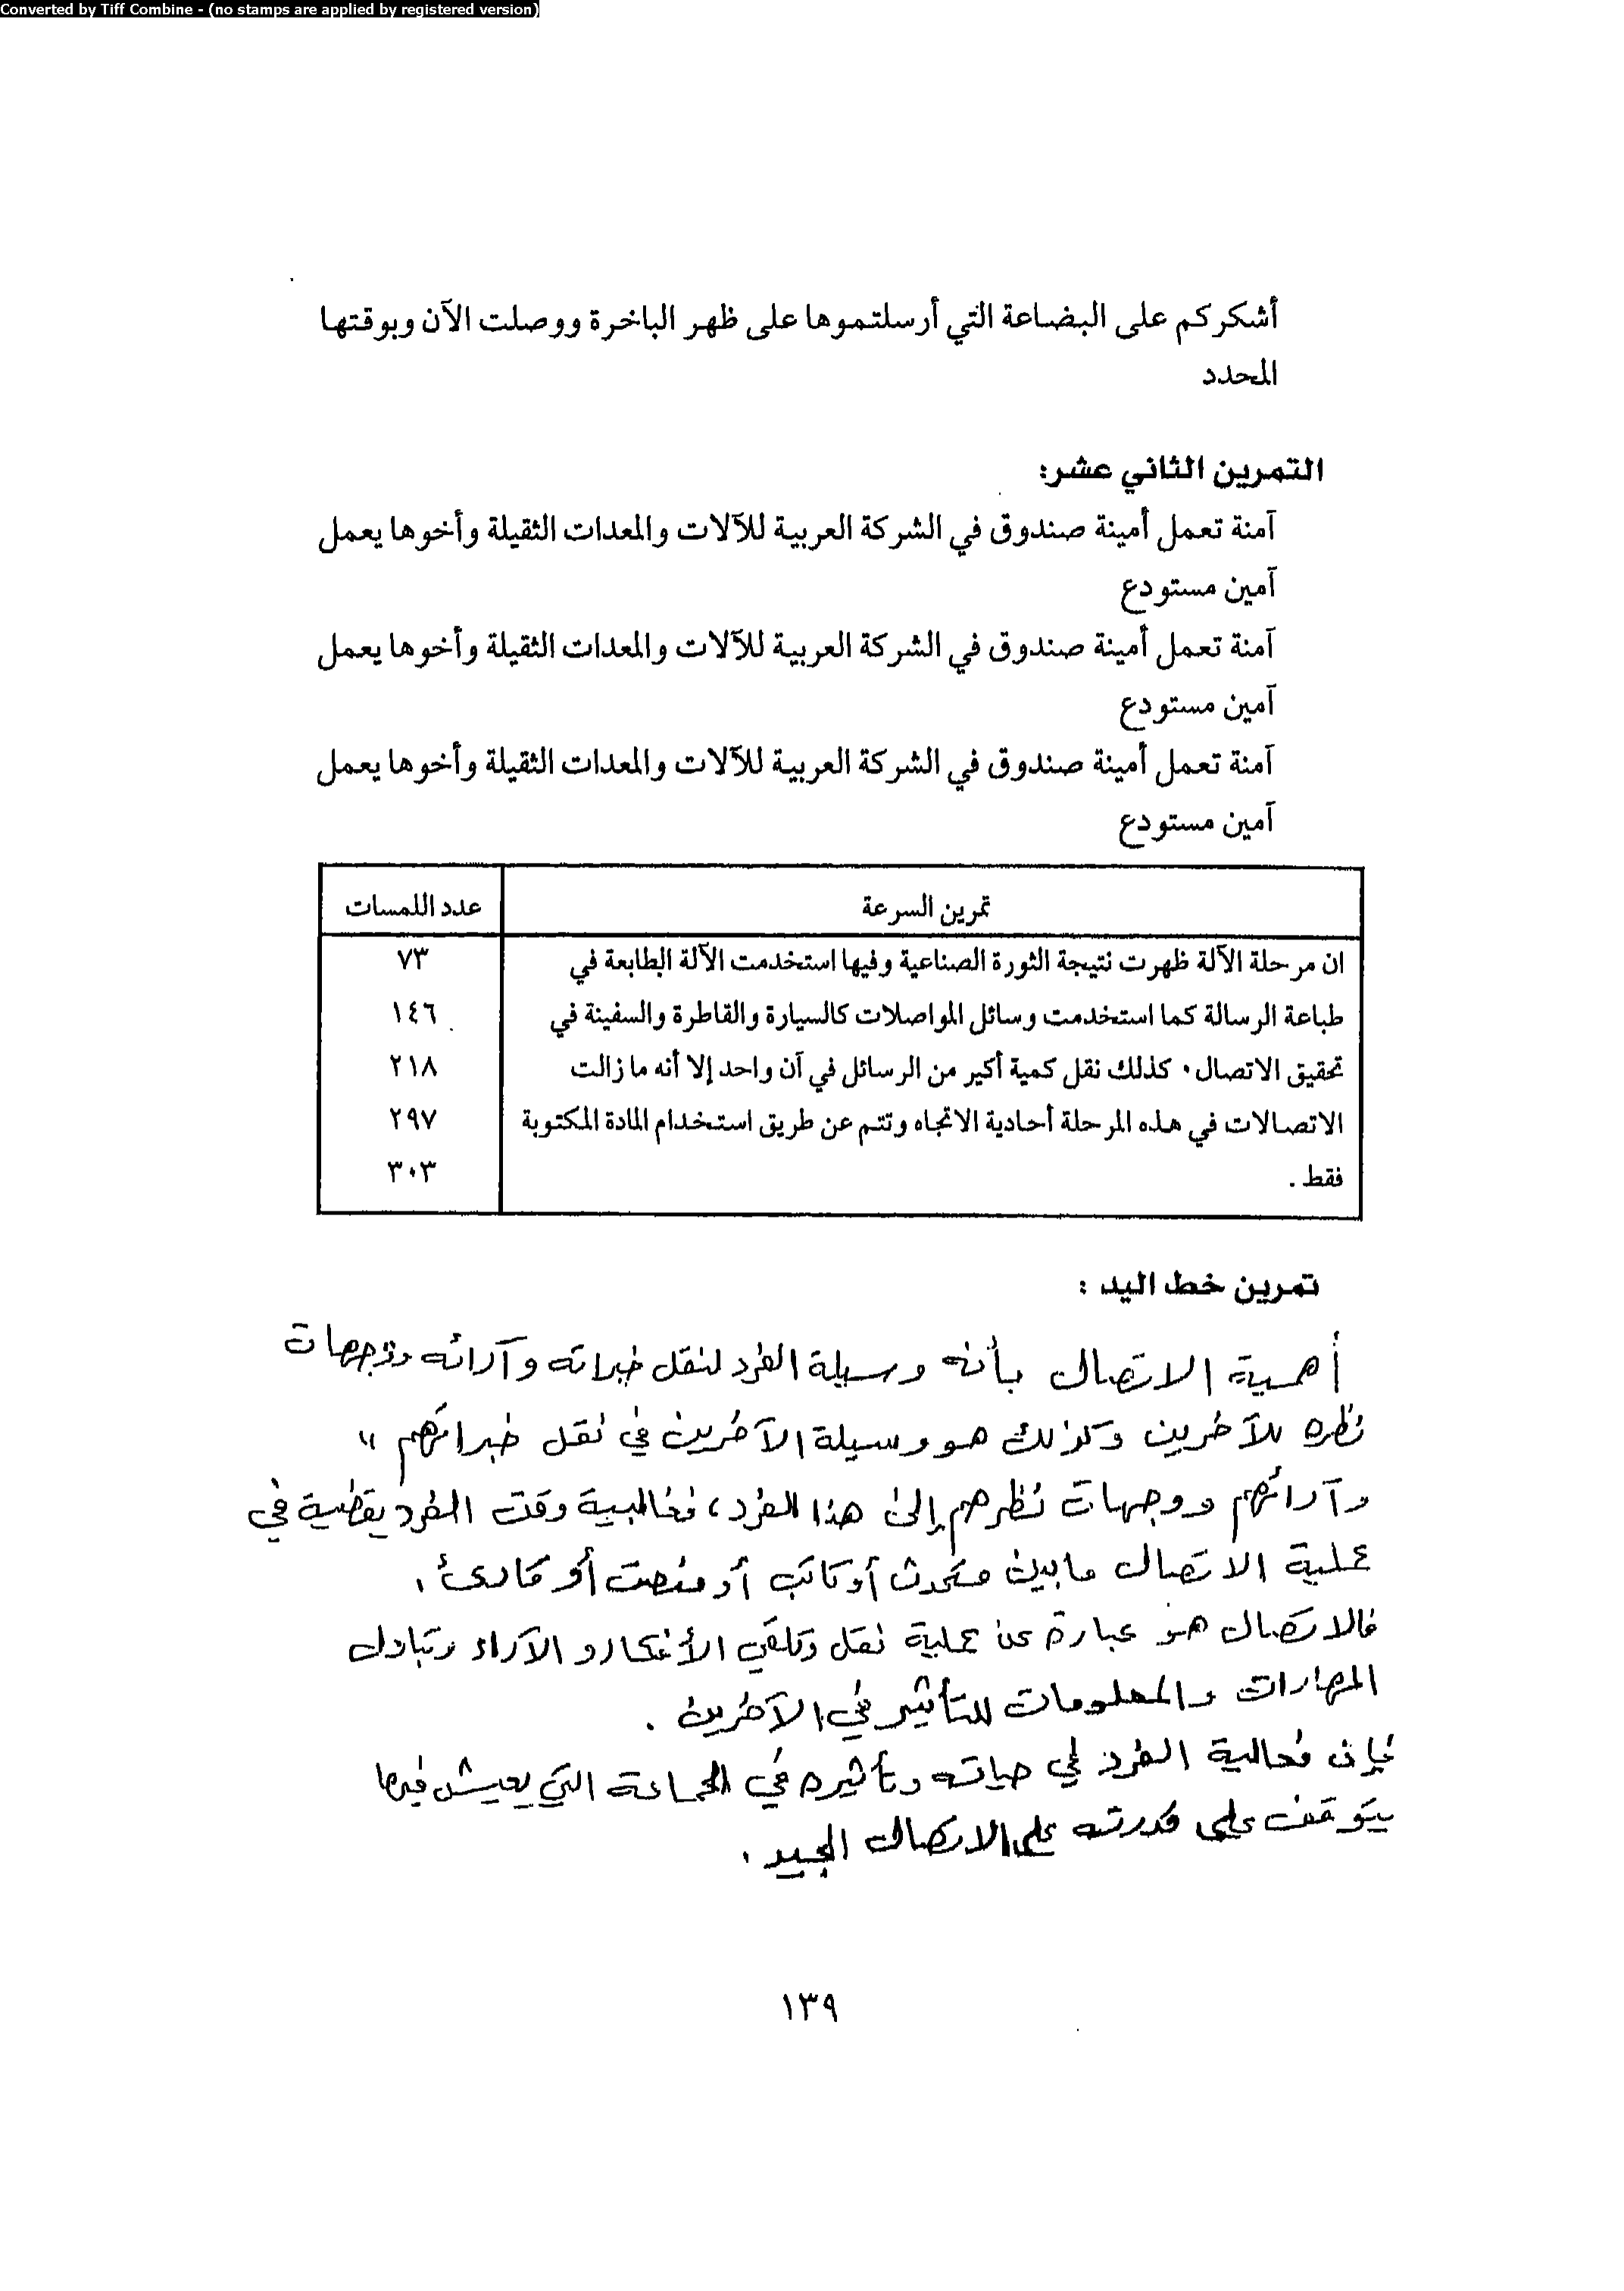 Converted by Tiff Combine - (no stamps are applied by registered version)
أشكركم على البضاعة التي أرسلتموها على ظهر الباخرة ووصلت الآن وبوقتها
المحدد
التمرين الثاني عشر:
آمنة تعمل أمينة صندوق في الشركة العربية للآلات والمعدات الثقيلة وأخوها يعمل
آمين مستودع
آمنة تعمل أمينة صندوق في الشركة العربية للآلات والمعدات الثقيلة وأخوها يعمل
آمين مستودع
آمنة تعمل أمينة صندوق في الشركة العربية للآلات والمعدات الثقيلة وأخوها يعمل
آمين مستودع
تمرين السرعة عدد اللمسات
ان مرحلة الآلة ظهرت نتيجة الثورة الصناعية وفيها استخدمت الآلة الطابعة في ٧٣
طباعة الرسالة كما استخدمت وسائل المواصلات كالسيارة والقاطرة والسفينة في ١٤٦
تحقيق الاتصال . كذلك نقل كمية أكبر من الرسائل في آن واحد إلا أنه ما زالت ٢١٨
الاتصالات في هذه المرحلة أحادية الاتجاه وتتم عن طريق استخدام المادة المكتوبة ٢٩٧
فقط . ٣٠٣
تمرين خط اليد :
أهمية الاتصال بأنه وسيلة الفرد لنقل خبراته وآرائه ووجهات
نظره للآخرين وكذلك هو وسيلة الآخرين في نقل خبراتهم "
وآرائهم ووجهات نظرهم إلى هذا الفرد، فغالبية وقت الفرد يقضية في
عملية الاتصال ما بين متحدث أو كاتب أو منصت أو قارئ .
فالاتصال هو عبارة عن عملية نقل وتلقي الأفكار و الآراء وتبادل
المهارات والمعلومات للتأثير في الآخرين .
فإن فعالية الفرد في حياته وتأثيره في الجماعة التي يعيش فيها
يتوقف على قدرته على الاتصال الجيد .
١٣٩